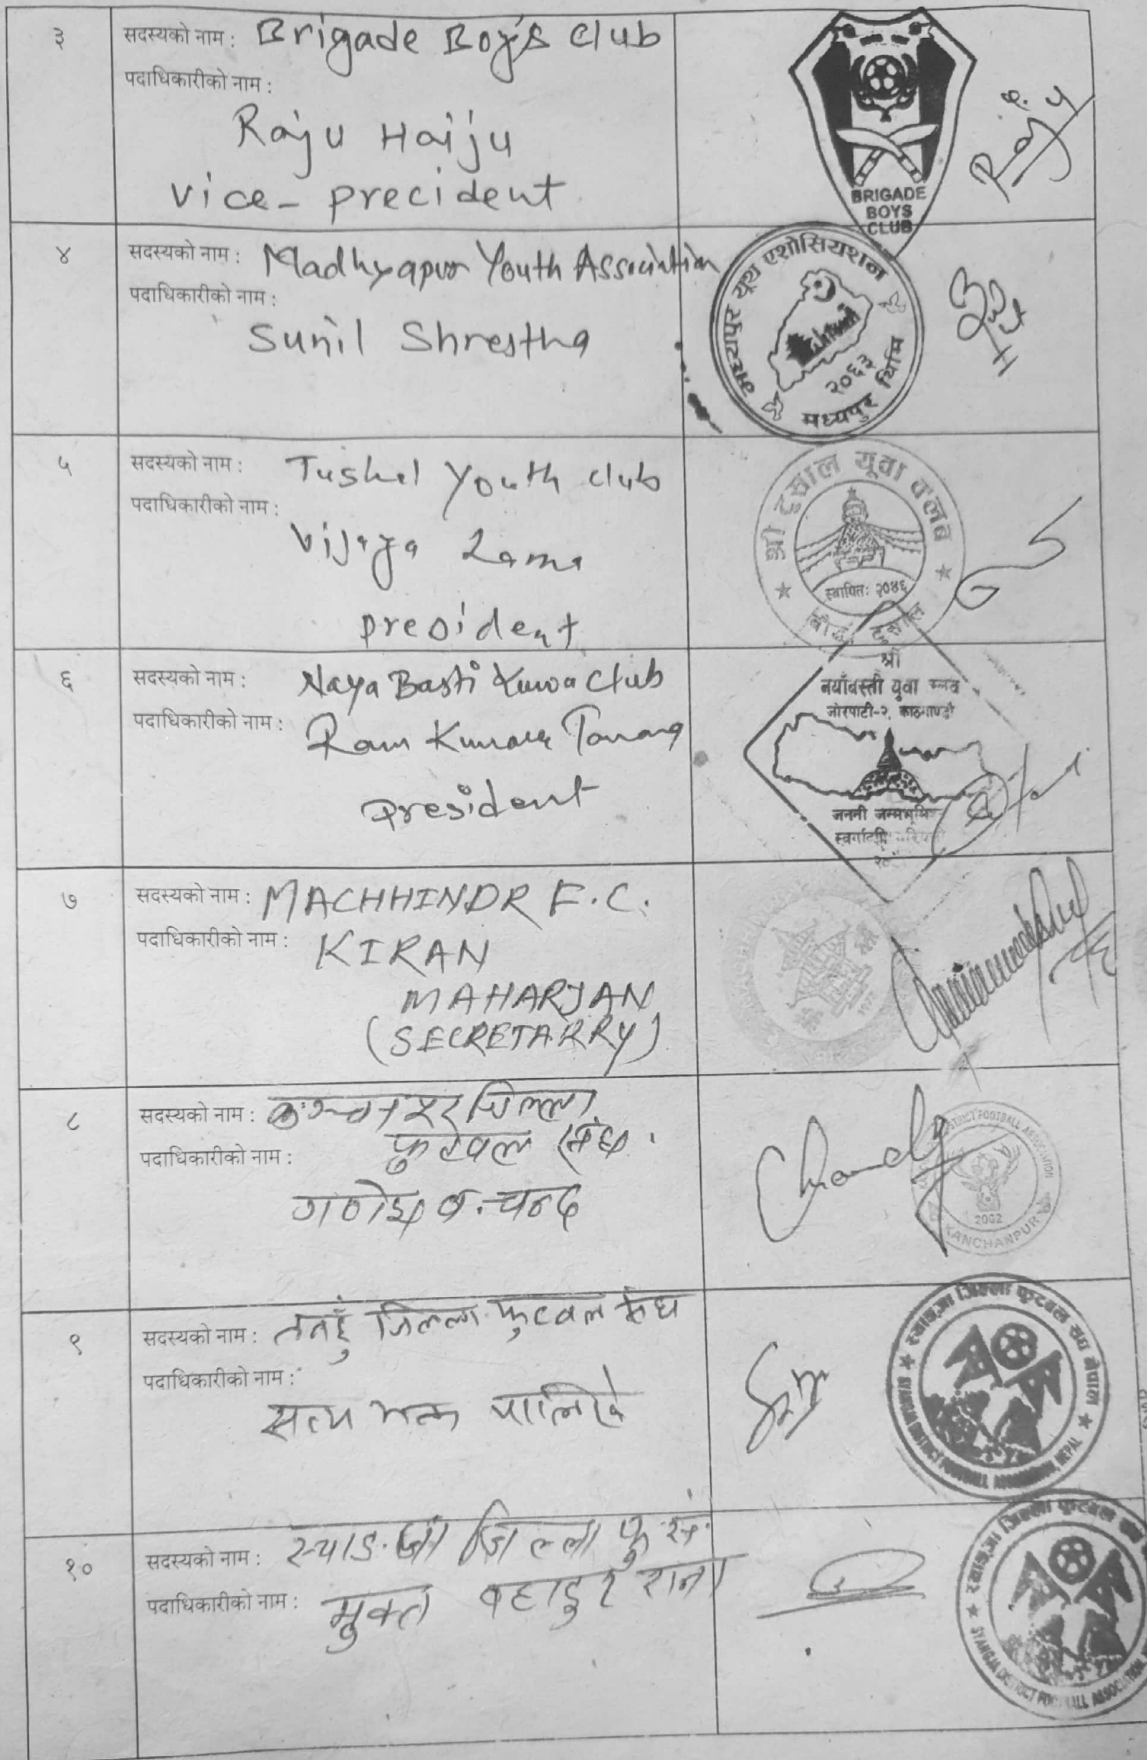 ३
सदस्यको नाम : Brigade Boy's Club
पदाधिकारीको नाम :
Raju Haiju
Vice - precident
BRIGADE
BOYS
CLUB
Raju
४
सदस्यको नाम : Madhyapur Youth Association
पदाधिकारीको नाम :
Sunil Shrestha
मध्यपुर यूथ एशोसियशन
२०६३
मध्यपुर थिमि
५
सदस्यको नाम : Tushal Youth Club
पदाधिकारीको नाम :
Vijaya Lama
president
श्री टुसाल यूवा क्लब
स्थापित: २०४६
६
सदस्यको नाम : Naya Basti Yuwa Club
पदाधिकारीको नाम :
Ram Kumar Tamang
president
श्री
नयाँबस्ती युवा क्लव
जोरपाटी-२, काठमाण्डौ
जननी जन्मभूमि
७
सदस्यको नाम : MACHHINDR F.C.
पदाधिकारीको नाम : KIRAN
MAHARJAN
(SECRETARRY)
८
सदस्यको नाम : कञ्चनपुर जिल्ला
फुटवल संघ.
पदाधिकारीको नाम :
गणेश ब. चन्द
DISTRICT FOOTBALL ASSOCIATION
2002
KANCHANPUR
९
सदस्यको नाम : तनहुँ जिल्ला फुटवल संघ
पदाधिकारीको नाम :
सत्य भक्त
स्याङ्जा जिल्ला फुटबल संघ नेपाल
SYANGJA DISTRICT FOOTBALL ASSOCIATION, NEPAL
१०
सदस्यको नाम : स्याङ्जा जिल्ला फु. सं.
पदाधिकारीको नाम : मुक्त बहादुर राना
स्याङ्जा जिल्ला फुटबल
SYANGJA DISTRICT FOOTBALL ASSOCIATION,